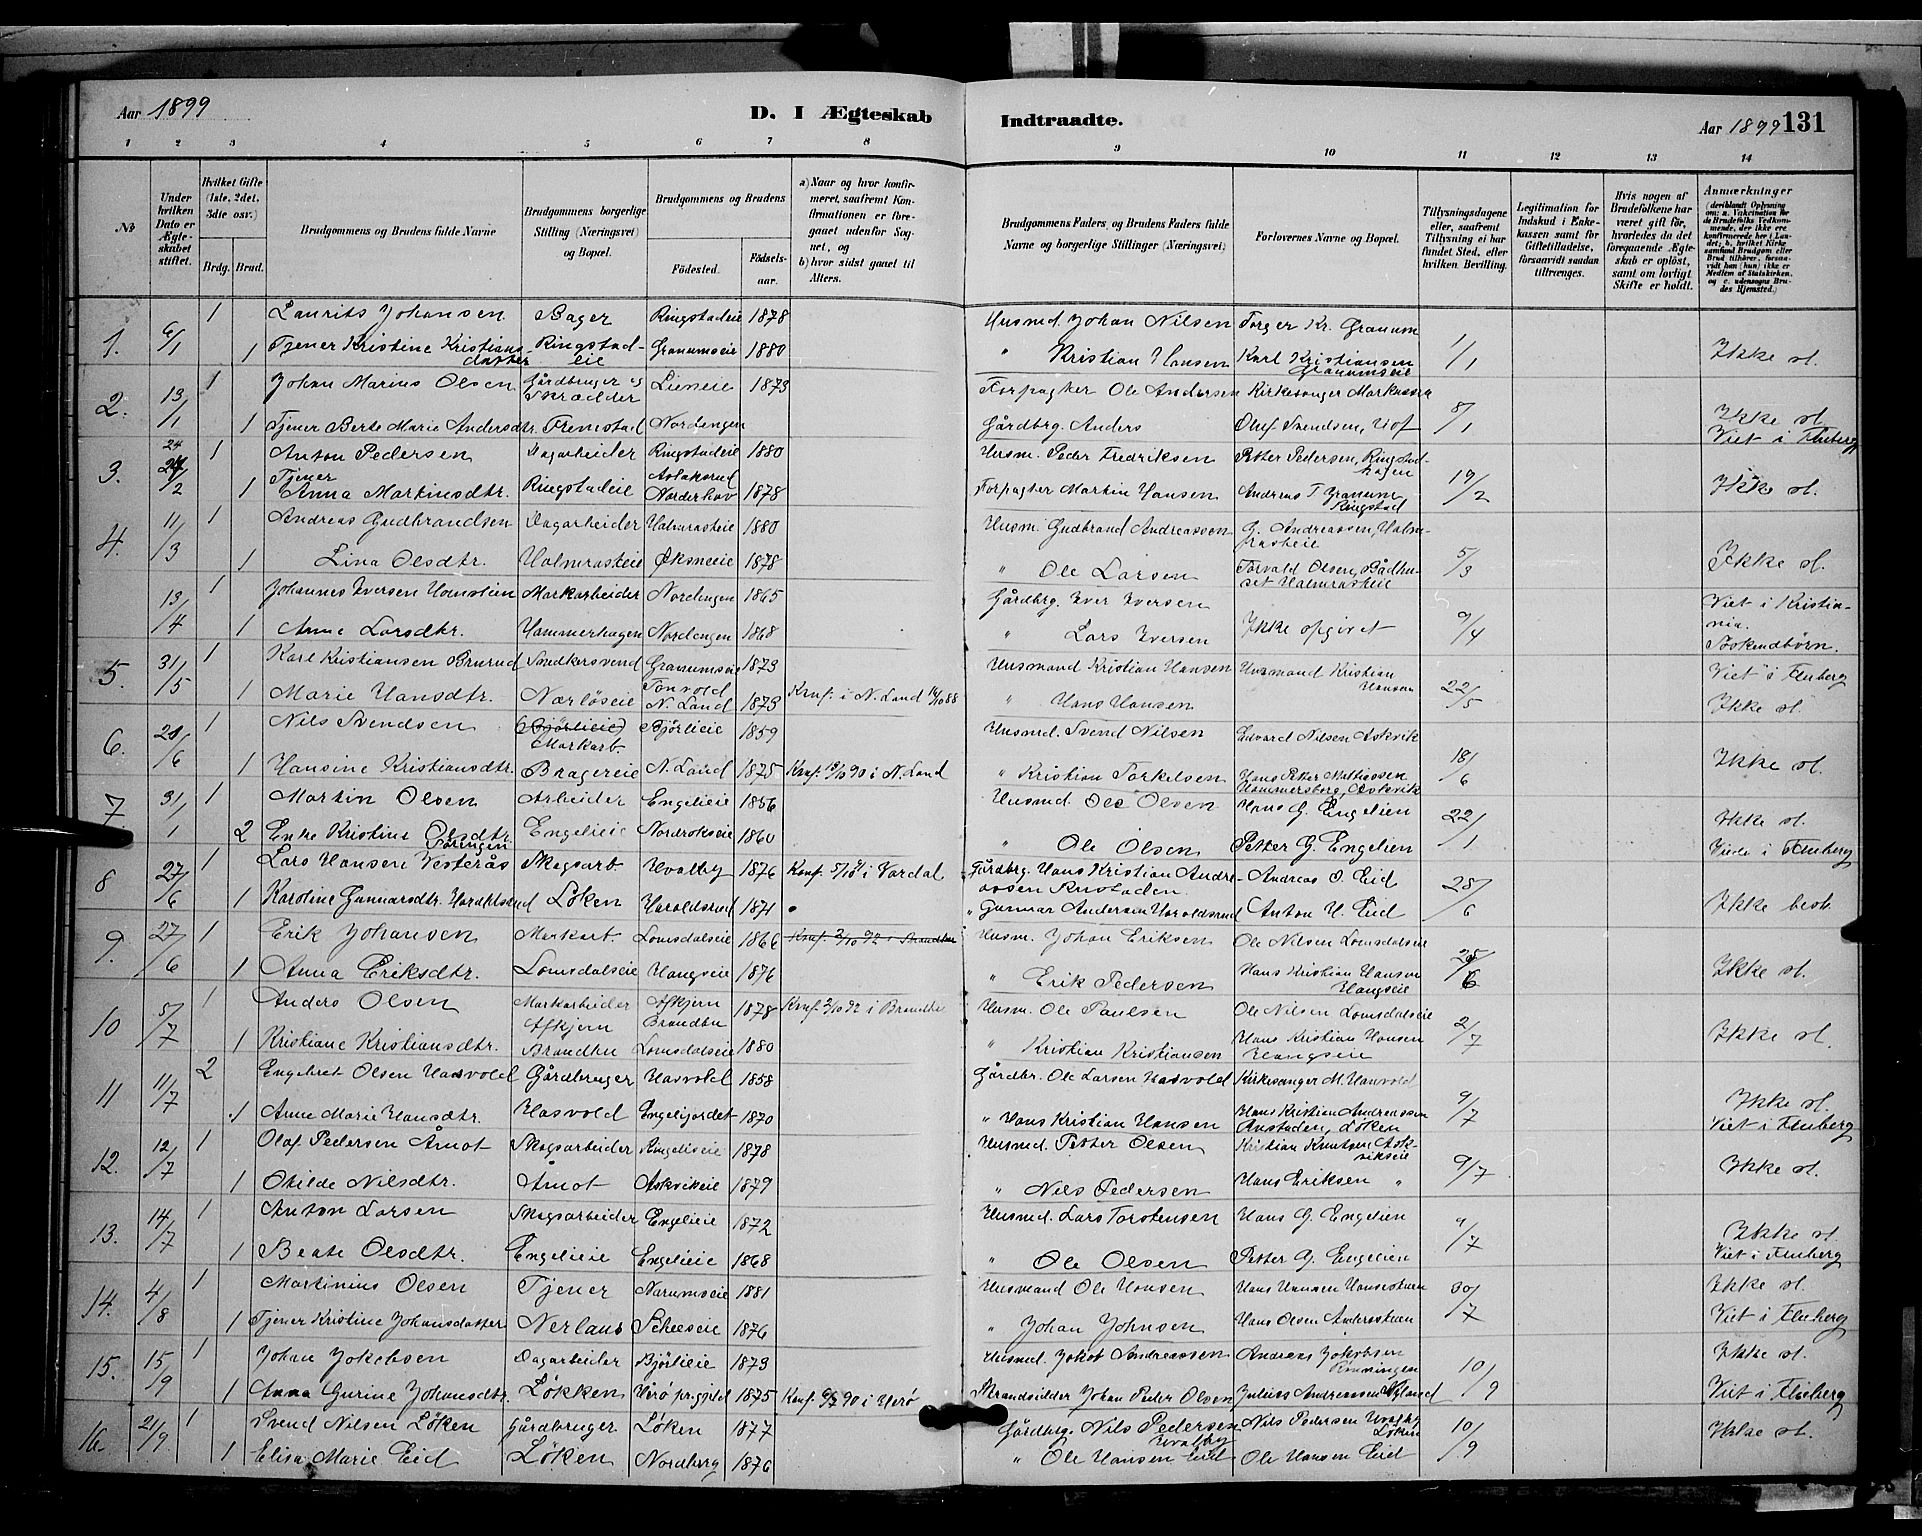 Aar 1899 D. I Ægteskab Indtraadte. Aar 1899 131
1 2 3 4 5 6 7 8 9 10 11 12 13 14
№
Under hvilken Dato er Ægteskabet stiftet.
Hvilket Gifte (1ste, 2det, 3die osv.)
Brdg. Brud.
Brudgommens og Brudens fulde Navne
Brudgommens borgerlige Stilling (Næringsvei) og Bopæl.
Brudgommens og Brudens
Födested. Födselsaar.
a) Naar og hvor konfirmeret, saafremt Konfirmationen er foregaaet udenfor Sognet, og
b) hvor sidst gaaet til Alters.
Brudgommens Faders og Brudens Faders fulde Navne og borgerlige Stillinger (Næringsvei)
Forlovernes Navne og Bopæl.
Tillysningsdagene eller, saafremt Tillysning ei har fundet Sted, efter hvilken Bevilling.
Legitimation for Indskud i Enkekassen samt for Giftetilladelse, forsaavidt saadan tiltrænges.
Hvis nogen af Brudefolkene har været gift för, hvorledes da det foregaaende Ægteskab er oplöst, samt om lovligt Skifte er holdt.
Anmærkninger
1. 6/1 1 Laurits Johansen Bager Ringstadeie 1878 Husmd. Johan Nilsen Torger Kr. Granum 1/1
1 Tjener Kristine Kristiansdatter Ringstadeie Granumseie 1880 " Kristian Hansen Karl Kristiansen Granumseie Ikke sl.
2. 13/1 1 Johan Marius Olsen Gårdbruger og Skrædder Lieneie 1873 Forpagter Ole Andersen Kirkesanger Markussen 8/1
1 Tjener Berte Marie Andersdtr. Fremstad Nordengen Gårdbrg. Anders Oluf Svendsen, Hof Ikke sl. Viet i Fluberg
3. 24/2 1 Anton Pedersen Dagarbeider Ringstadeie 1880 Husm. Peder Fredriksen Petter Pedersen, Ringstadhagen 19/2
1 Tjener Anna Martinsdtr. Ringstadeie Norderhov 1878 Forpagter Martin Hansen Andreas T. Granum Ringstad Ikke sl.
4. 11/3 1 Andreas Gudbrandsen Dagarbeider Halmrasteie 1880 Husm. Gudbrand Andreassen G. Andreassen, Halmrasteie 5/3
1 Lina Olsdtr. Halmrasteie Öksneeie 1878 " Ole Larsen Torvald Olsen, Halmrasteie Ikke sl.
13/4 1 Johannes Iversen Homstein Markarbeider Nordengen 1865 Gårdbrg. Iver Iversen Ikke opgivet 9/4 Viet i Kristiania.
1 Anne Larsdtr. Hammerhagen Nordengen 1868 " Lars Iversen Söskendbörn
5. 31/5 1 Karl Kristiansen Brurud Snedkersvend Granumseie 1873 Husmand Kristian Hansen Husmand Kristian Hansen 22/5 Viet i Fluberg
1 Marie Hansdtr. Nærlöseie Tonvold N. Land 1873 Knf. i N. Land 14/10 88 " Hans Hansen Ikke sl.
6. 1 Nils Svendsen Markarb. Björlieie 1859 Husmd. Svend Nilsen Edvard Nilsen Askvik 18/6
1 Hansine Kristiansdtr. Bragereie N. Land 1875 Knf. i N. Land " Kristian Torkelsen Hans Petter Mathiassen Hammersberg, Askvik Ikke sl.
7. 31/1 1 Martin Olsen Arbeider Engelieie 1856 Husmd. Ole Olsen Hans G. Engelien 22/1 Ikke sl.
2 Enke Kristine Olsdtr. Engelieie Nordrokseie 1860 " Ole Olsen Petter G. Engelien Viet i Fluberg
8 27/6 1 Lars Hansen Vesterås Skogsarb. Hvalby 1876 Knf. i Vardal Gårdbrg. Hans Kristian Andreassen Andreas O. Eid 25/6
1 Karoline Gunnarsdtr. Haraldsrud Löken Haroldsrud 1871 " Gunnar Andersen Haroldsrud Anton H. Eid Ikke besl.
9. 27/6 1 Erik Johansen Markarb. Lomsdalseie 1866 Husm. Johan Eriksen Ole Nilsen Lomsdalseie 25/6
1 Anna Eriksdtr. Lomsdalseie Haugseie 1876 " Erik Pedersen Hans Kristian Hansen Haugseie Ikke sl.
10 5/7 1 Anders Olsen Markarbeider Afkjern Brandbu 1878 Knf. 2/10 92 i Brandbu Husm. Ole Paulsen Ole Nilsen Lomsdalseie 2/7
1 Kristiane Kristiansdtr. Afkjern Brandbu Lomsdalseie 1880 " Kristian Kristiansen Hans Kristian Hansen Haugseie Ikke sl.
11 11/7 2 Engebret Olsen Hasvold Gårdbruger Hasvold 1858 Gårdbr. Ole Larsen Hasvold Kirkesanger M. Hasvold 9/7 Ikke sl.
1 Anne Marie Hansdtr. Hasvold Engejordet 1870 " Hans Kristian Hansen Hans Kristian Andreassen Löken Viet i Fluberg
12. 12/7 1 Olaf Pedersen Åmot Skogsarbeider Ringelieeie 1878 Husmd. Petter Olsen Kristian Knutsen Askvikeie 9/7
1 Otilde Nilsdtr. Åmot Askvikeie 1879 " Nils Pedersen Hans Eriksen " Ikke sl.
13. 14/7 1 Anton Larsen Skogsarbeider Engelieie 1872 Husmd. Lars Torstensen Hans G. Engelien 9/7 Ikke sl.
1 Beate Olsdtr. Engelieie Engelieie 1868 " Ole Olsen Petter G. Engelien Viet i Fluberg
14. 4/8 1 Martinius Olsen Tjener Narumseie 1881 Husmand Ole Hansen Hans Hansen 30/7 Ikke sl.
1 Tjener Kristine Johansdatter Nerlaus Scheeseie 1876 " Johan Johnsen Hans Olsen Viet i Fluberg
15. 15/9 1 Johan Jokobsen Dagarbeider Björlieie 1873 Husmd. Jokob Andreassen Andreas Jokobsen Rönningen 10/9 Ikke sl.
1 Anna Gurine Johansdtr. Lökken Herö prgjeld 1875 Knf. i Herö Strandsidder Johan Peder Olsen Julius Andreassen Nyland Viet i Fluberg
16. 21/9 1 Svend Nilsen Löken Gårdbruger Löken 1877 Gårdbrg. Nils Pedersen Hvalby Nils Pedersen Hvalby Löken 10/9 Ikke sl.
1 Elise Marie Eid Löken Nordberg 1876 " Ole Hansen Eid Ole Hansen Eid